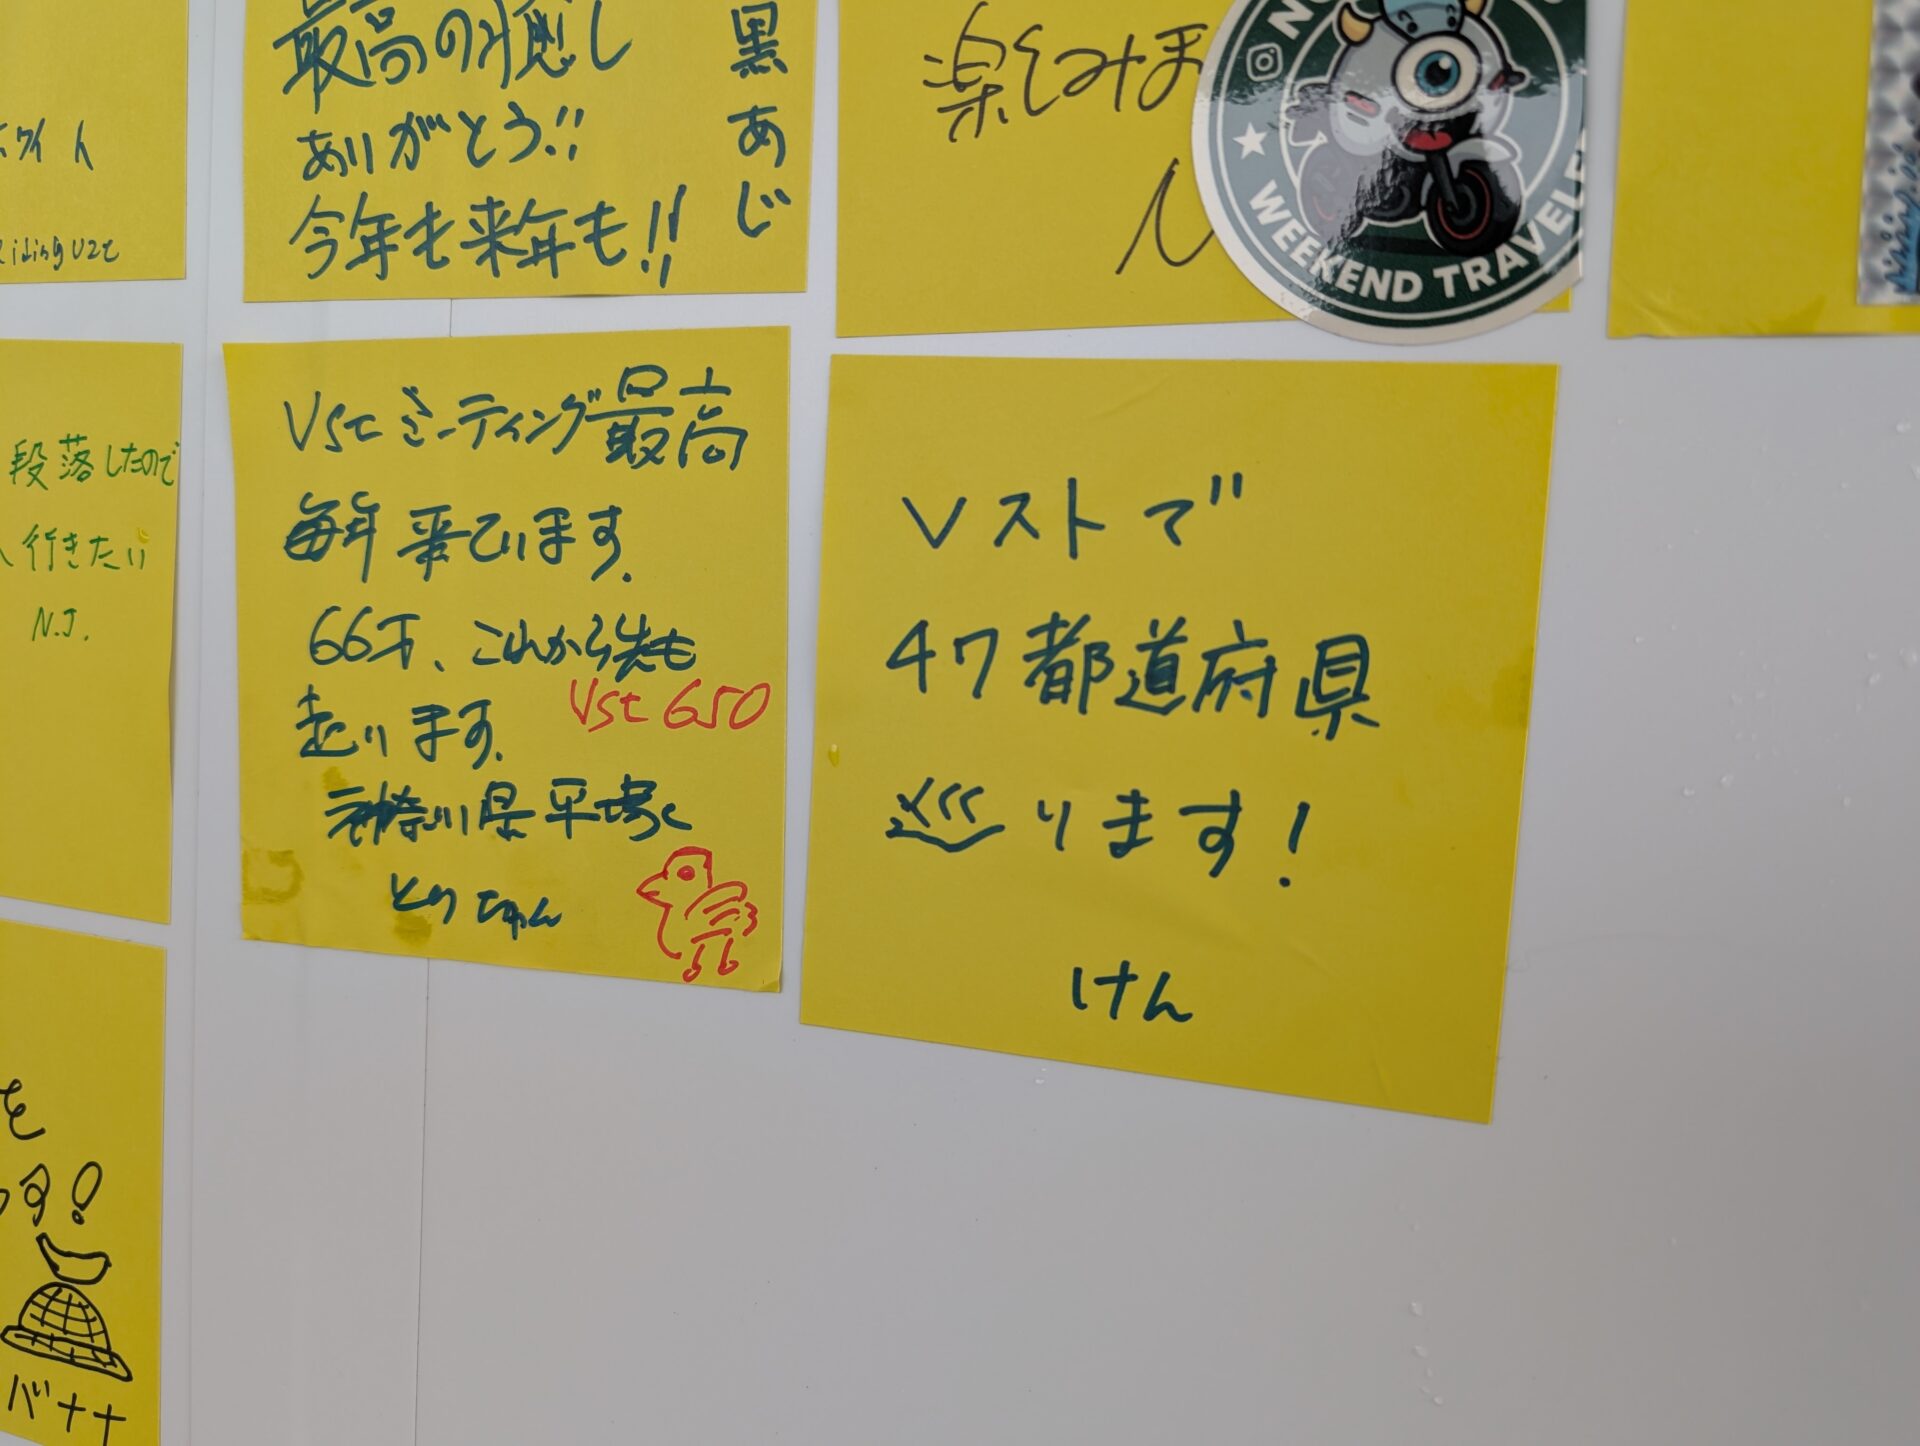 最高の癒し
ありがとう!!
今年も来年も!!
黒あじ
楽しみま
WEEKEND TRAVELE
段落したので
行きたい
N.J.
Vstミーティング最高
毎年来ています.
66才、これから先も
走ります.
Vst 650
神奈川県平塚
とりちゃん
Vストで
47都道府県
巡ります!
けん
を
ます!
バナナ